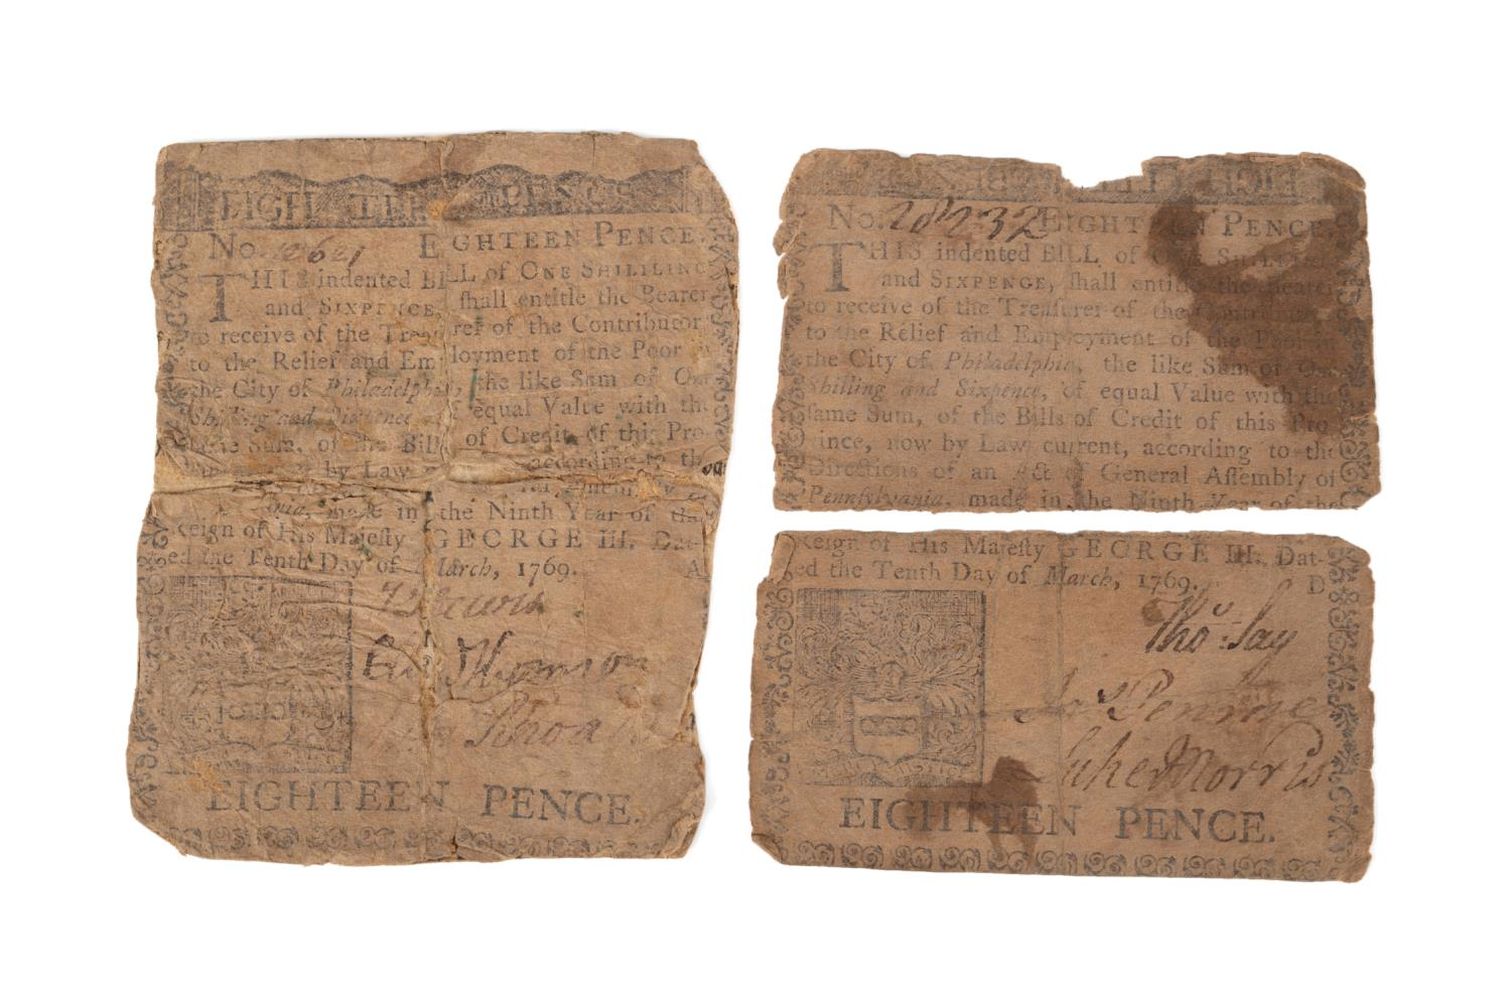 EIGHTEEN PENCE
No. 12621 EIGHTEEN PENCE.
THIS indented BILL of ONE SHILLING
and SIXPENCE, shall entitle the Bearer
to receive of the Treasurer of the Contributors
to the Relief and Employment of the Poor
the City of Philadelphia, the like Sum of One
Shilling and Sixpence of equal Value with the
same Sum, of the Bills of Credit of this Pro-
by Law according to the
made in the Ninth Year of the
Reign of His Majesty GEORGE III. Dat-
ed the Tenth Day of March, 1769. A
Thomson
Rhoa
EIGHTEEN PENCE.
No. 28232 EIGHTEEN PENCE.
THIS indented BILL of ONE SHILLING
and SIXPENCE, shall entitle the Bearer
to receive of the Treasurer of the Contributors
to the Relief and Employment of the Poor
the City of Philadelphia, the like Sum of One
Shilling and Sixpence, of equal Value with the
same Sum, of the Bills of Credit of this Pro-
vince, now by Law current, according to the
Directions of an Act of General Assembly of
Pennsylvania, made in the Ninth Year of the
Reign of His Majesty GEORGE III. Dat-
ed the Tenth Day of March, 1769. D
Thos. Say
Jos Penrose
Luke Morris
EIGHTEEN PENCE.